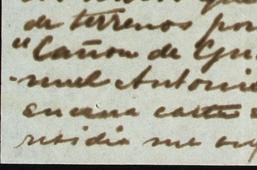 de terrenos por
"Cañon de Gu
nuel Antonio
en una carta
residia me